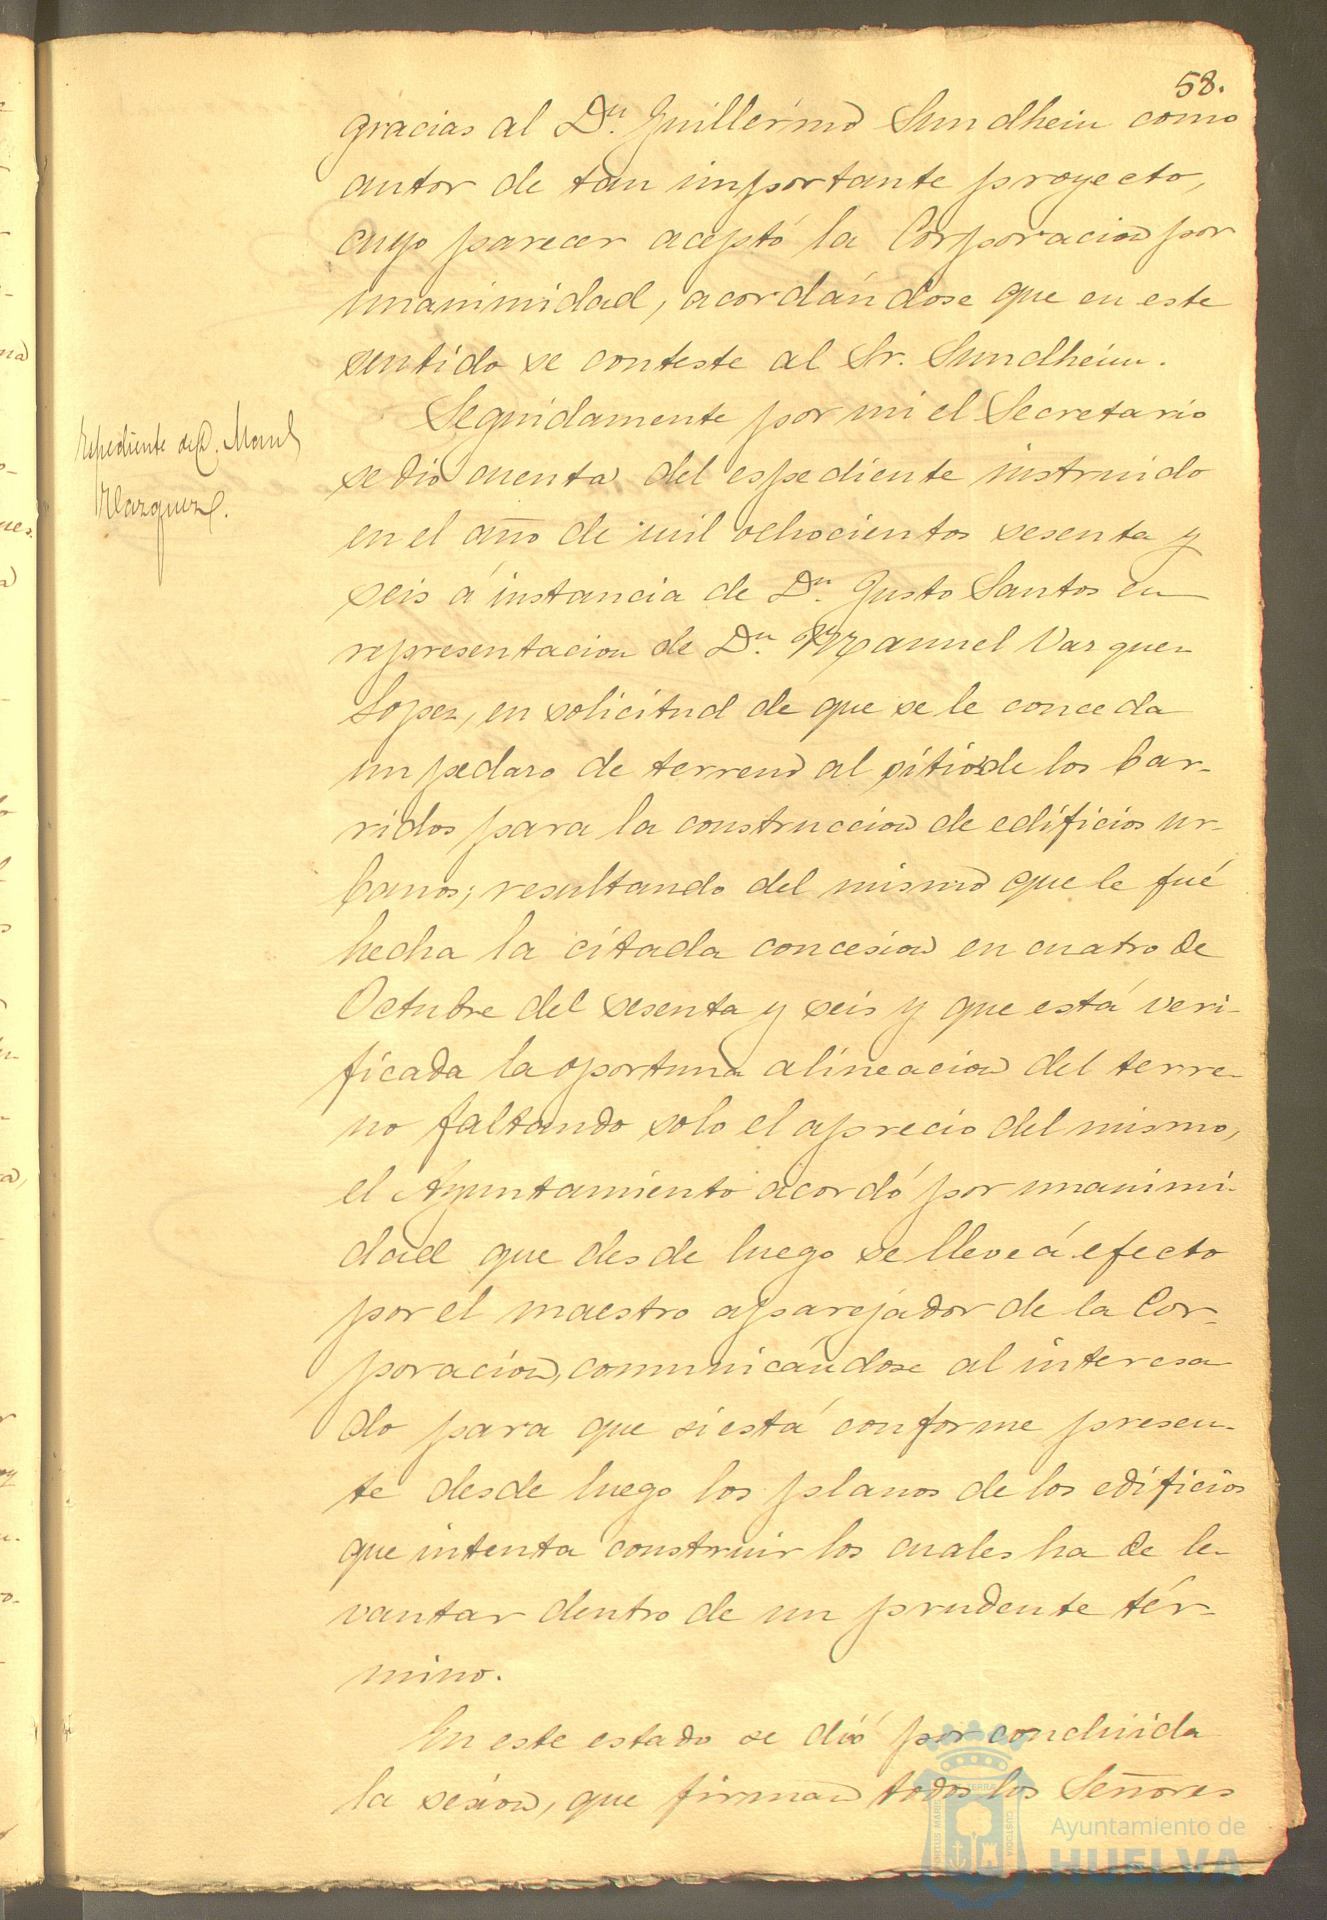 58.
gracias al Dn. Guillérmo Sundhein como
autor de tan importante proyecto,
cuyo parecer aceptó la Corporacion por
unanimidad, acordándose que en este
sentido se conteste al Sr. Sundheim.
Seguidamente por mi el Secretario
Espediente de D. Manuel
Vazquez.
se dió cuenta del espediente instruido
en el año de mil ochocientos sesenta y
seis á instancia de Dn. Justo Santos en
representacion de Dn. Manuel Vazquez
Lopez, en solicitud de que se le conceda
un pedazo de terreno al sitio de los bar-
ridos para la construccion de edificios ur-
banos; resultando del mismo que le fué
hecha la citada concesion en cuatro de
Octubre del sesenta y seis y que está veri-
ficada la oportuna alineacion del terre-
no faltando solo el aprecio del mismo,
el Ayuntamiento acordó por unanimi-
dad que desde luego se lleve á efecto
por el maestro aparejador de la Cor-
poracion, comunicándose al interesa
do para que si está conforme presen-
te desde luego los planos de los edificios
que intenta construir los cuales ha de le-
vantar dentro de un prudente tér-
mino.
En este estado se dió por concluida
la sesion, que firman todos los Señores
Ayuntamiento de
HUELVA